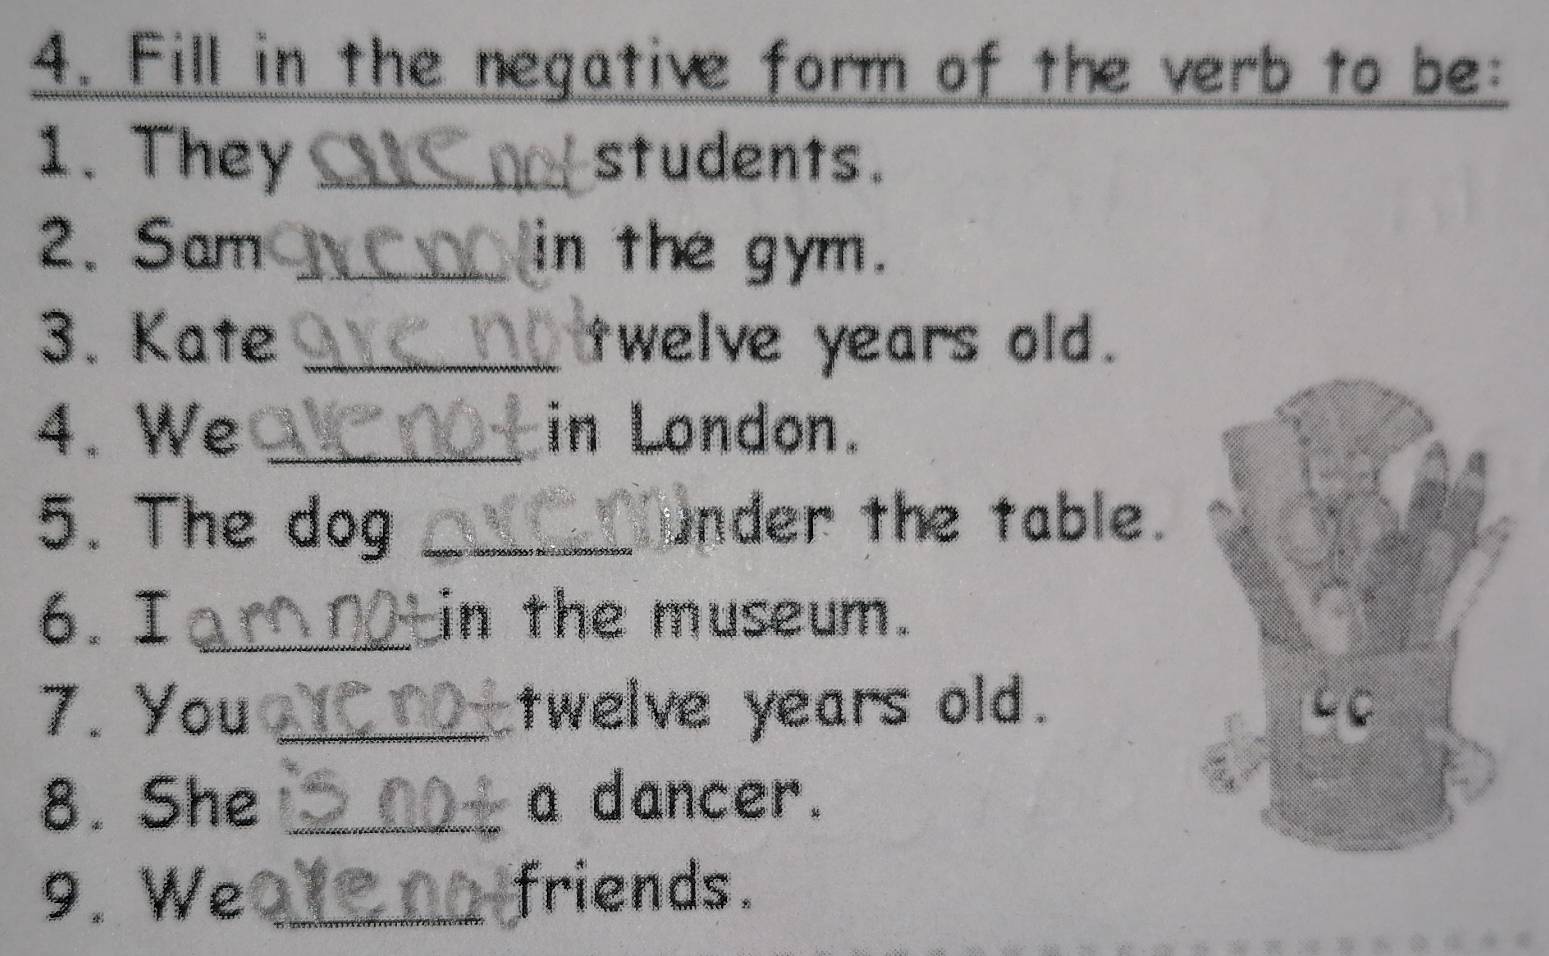 4. Fill in the negative form of the verb to be:
1. They are not students.
2. Sam are not in the gym.
3. Kate are not twelve years old.
4. We are not in London.
5. The dog are not under the table.
6. I am not in the museum.
7. You are not twelve years old.
8. She is not a dancer.
9. We are not friends.